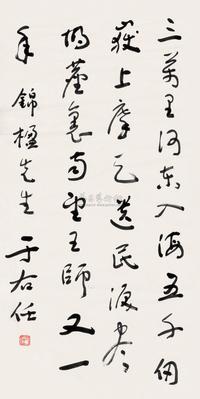 三萬里河東入海五千仞
嶽上摩天遺民淚盡
胡塵裏南望王師又一
年 錦楹先生 于右任